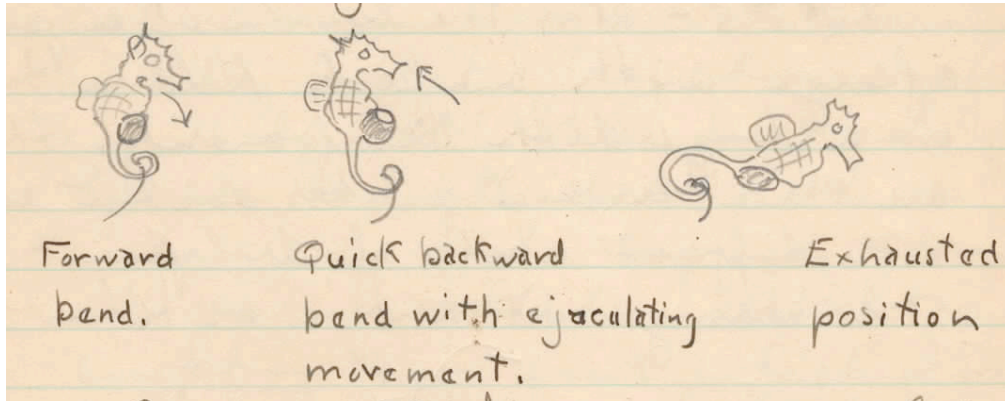 Forward
bend.
Quick backward
bend with ejaculating
movement.
Exhausted
position